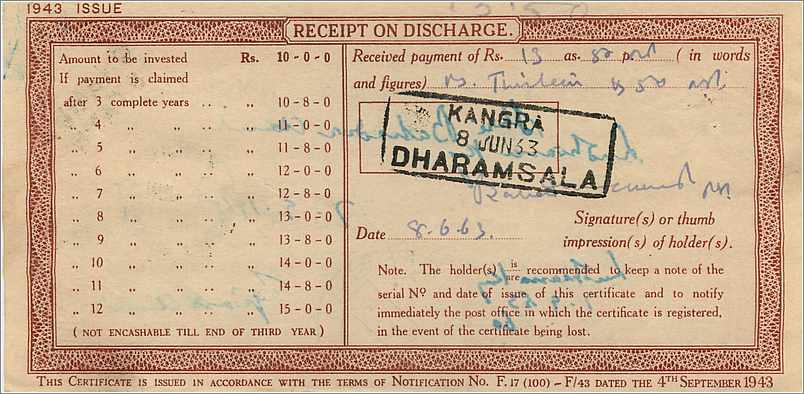 1943 ISSUE
RECEIPT ON DISCHARGE.
Amount to be invested Rs. 10-0-0
If payment is claimed
after 3 complete years .. „ 10-8-0
„ 4 „ „ .. „ 11-0-0
„ 5 „ „ .. „ 11-8-0
„ 6 „ „ .. „ 12-0-0
„ 7 „ „ .. „ 12-8-0
„ 8 „ „ .. „ 13-0-0
„ 9 „ „ .. „ 13-8-0
„ 10 „ „ .. „ 14-0-0
„ 11 „ „ .. „ 14-8-0
„ 12 „ „ .. „ 15-0-0
( NOT ENCASHABLE TILL END OF THIRD YEAR )
Received payment of Rs. 13 as. 50 p. ( in words
and figures) Rs. Thirteen
KANGRA
8 JUN 63
DHARAMSALA
Date 8.6.63.
Signature(s) or thumb
impression(s) of holder(s).
Note. The holder(s) is/are recommended to keep a note of the
serial No and date of issue of this certificate and to notify
immediately the post office in which the certificate is registered,
in the event of the certificate being lost.
THIS CERTIFICATE IS ISSUED IN ACCORDANCE WITH THE TERMS OF NOTIFICATION NO. F. 17 (100) – F/43 DATED THE 4TH SEPTEMBER 1943